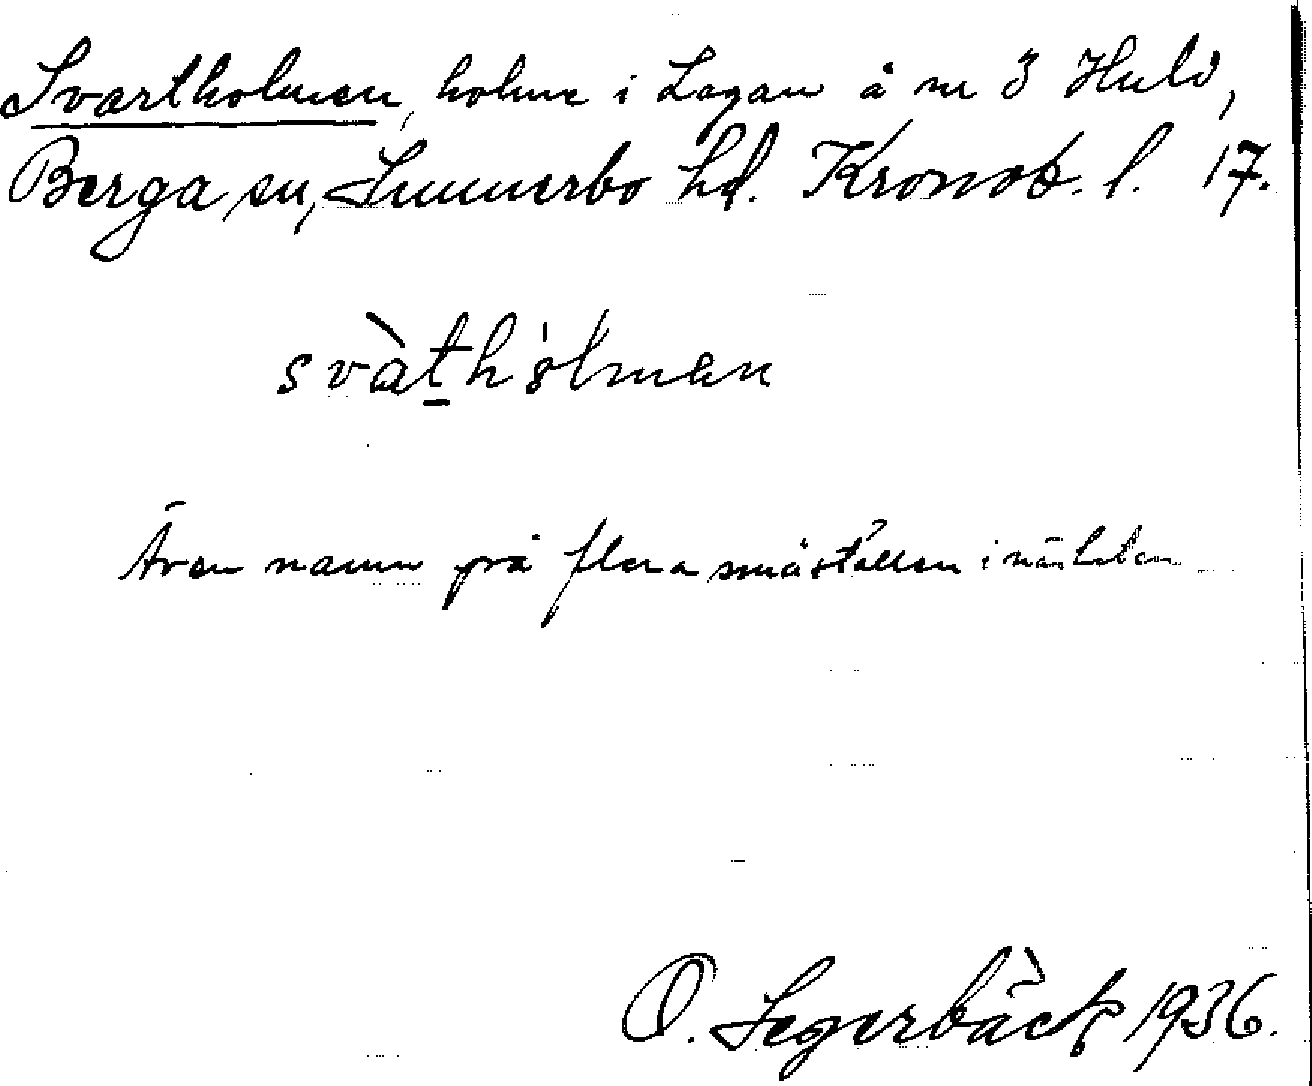 Svartholmen, holme i Lagan å nr 3 Hulo,
Berga sn, Sunnerbo hd. Kronob. l. 17.
svàt̲hòlman
Även namn på flera småställen i närheten
O. Segerbäck 1936.